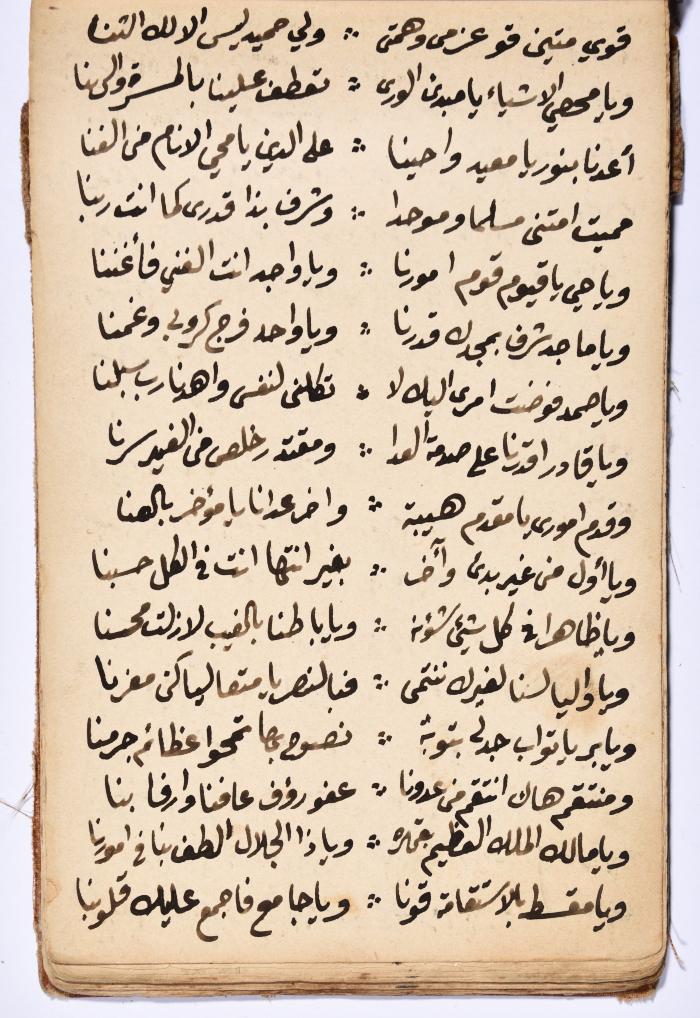 قوي متين قو عزمى وهمتى ∴ ولي حميد ليس الا لك الثنا
ويا محصي الاشياء يا مبدئ الورى ∴ تعطف علينا بالمسرة والهنا
أعدنا بنور يا معيد واحينا ∴ على الدين يا محي الانام من الفنا
مميت امتنى مسلما وموحدا ∴ وشرف بذا قدرى كما انت ربنا
ويا حي يا قيوم قوم امورنا ∴ ويا واجد انت الغني فأغننا
ويا ماجد شرف بمجدك قدرنا ∴ ويا واحد فرج كروبي وغمنا
ويا صمد فوضت امرى اليك لا ∴ تكلنى لنفس واهدنا رب سبلنا
ويا قادر اقدرنا على صدمة العدا ∴ ومقتدر خلص من الغير سرنا
وقدم امورى يا مقدم هيبة ∴ واخر عدانا يا مؤخر بالعنا
ويا أول من غير بدئ وآخر ∴ بغير انتها انت في الكل حسبنا
ويا ظاهرا في كل شيئ شؤنه ∴ ويا باطنا بالغيب لازلت محسنا
ويا واليا لسنا لغيرك ننتمى ∴ فبالنصر يا متعاليا كن معزنا
ويا بر يا تواب جد لى بتوبة ∴ نصوح بها تمحوا عظائم جرمنا
ومنتقم هاك انتقم من عدونا ∴ عفو رؤف عافنا وارفا بنا
ويا مالك الملك العظيم بقهره ∴ ويا ذا الجلال الطف بنا في امورنا
ويا مقسط بالاستقامة قونا ∴ ويا جامع فاجمع عليك قلوبنا